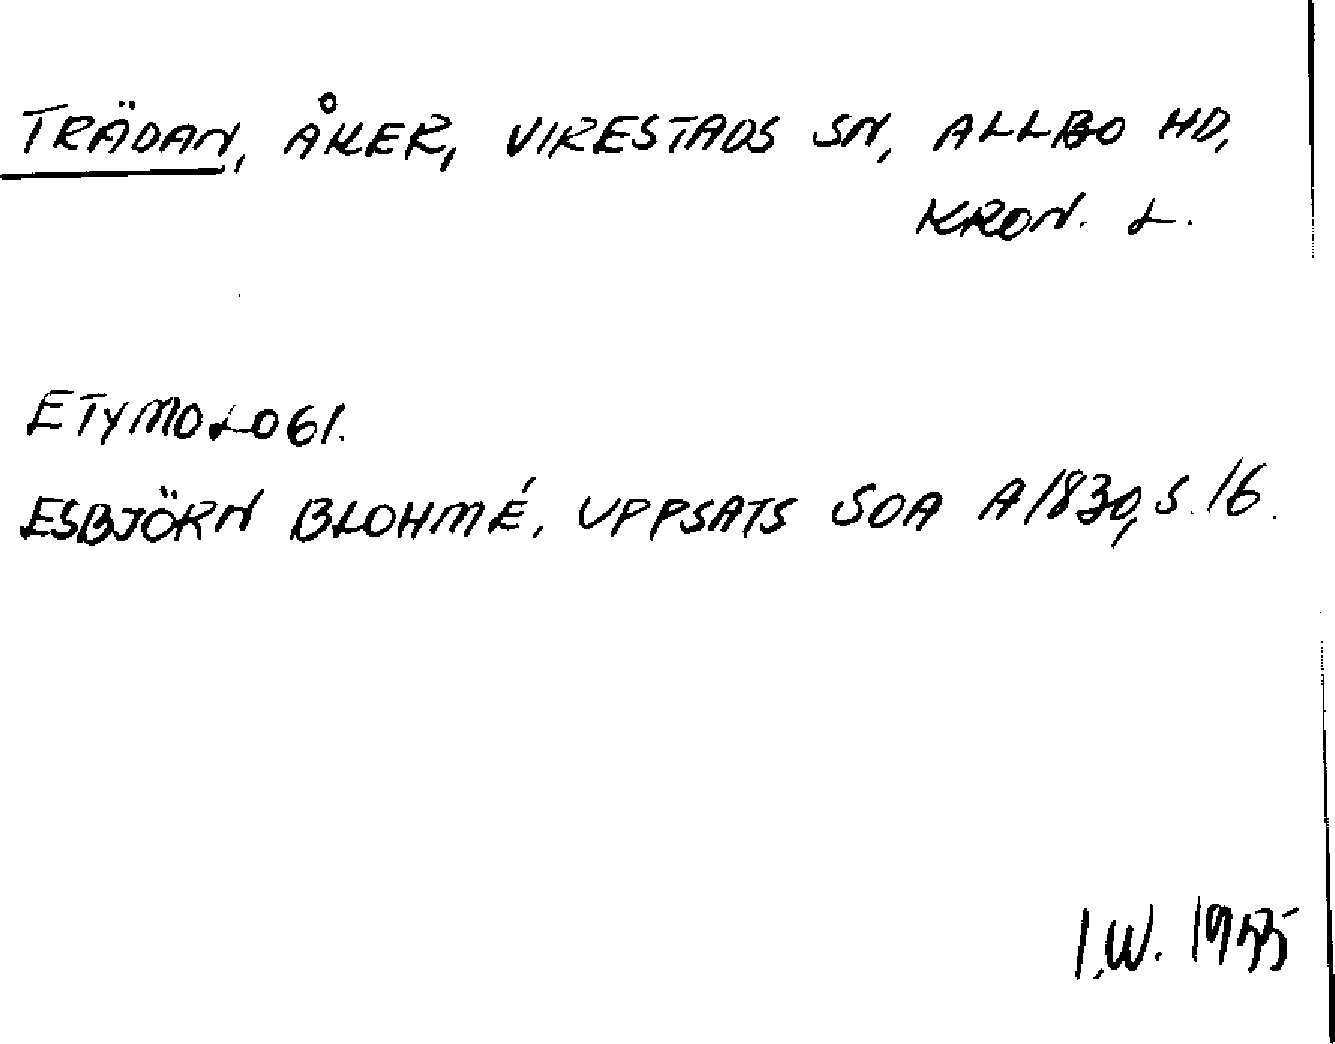 TRÄDAN, ÅKER, VIRESTADS SN, ALLBO HD,
KRON. L.
ETYMOLOGI.
ESBJÖRN BLOHMÉ, UPPSATS SOA A1830, S. 16.
I.W. 1955